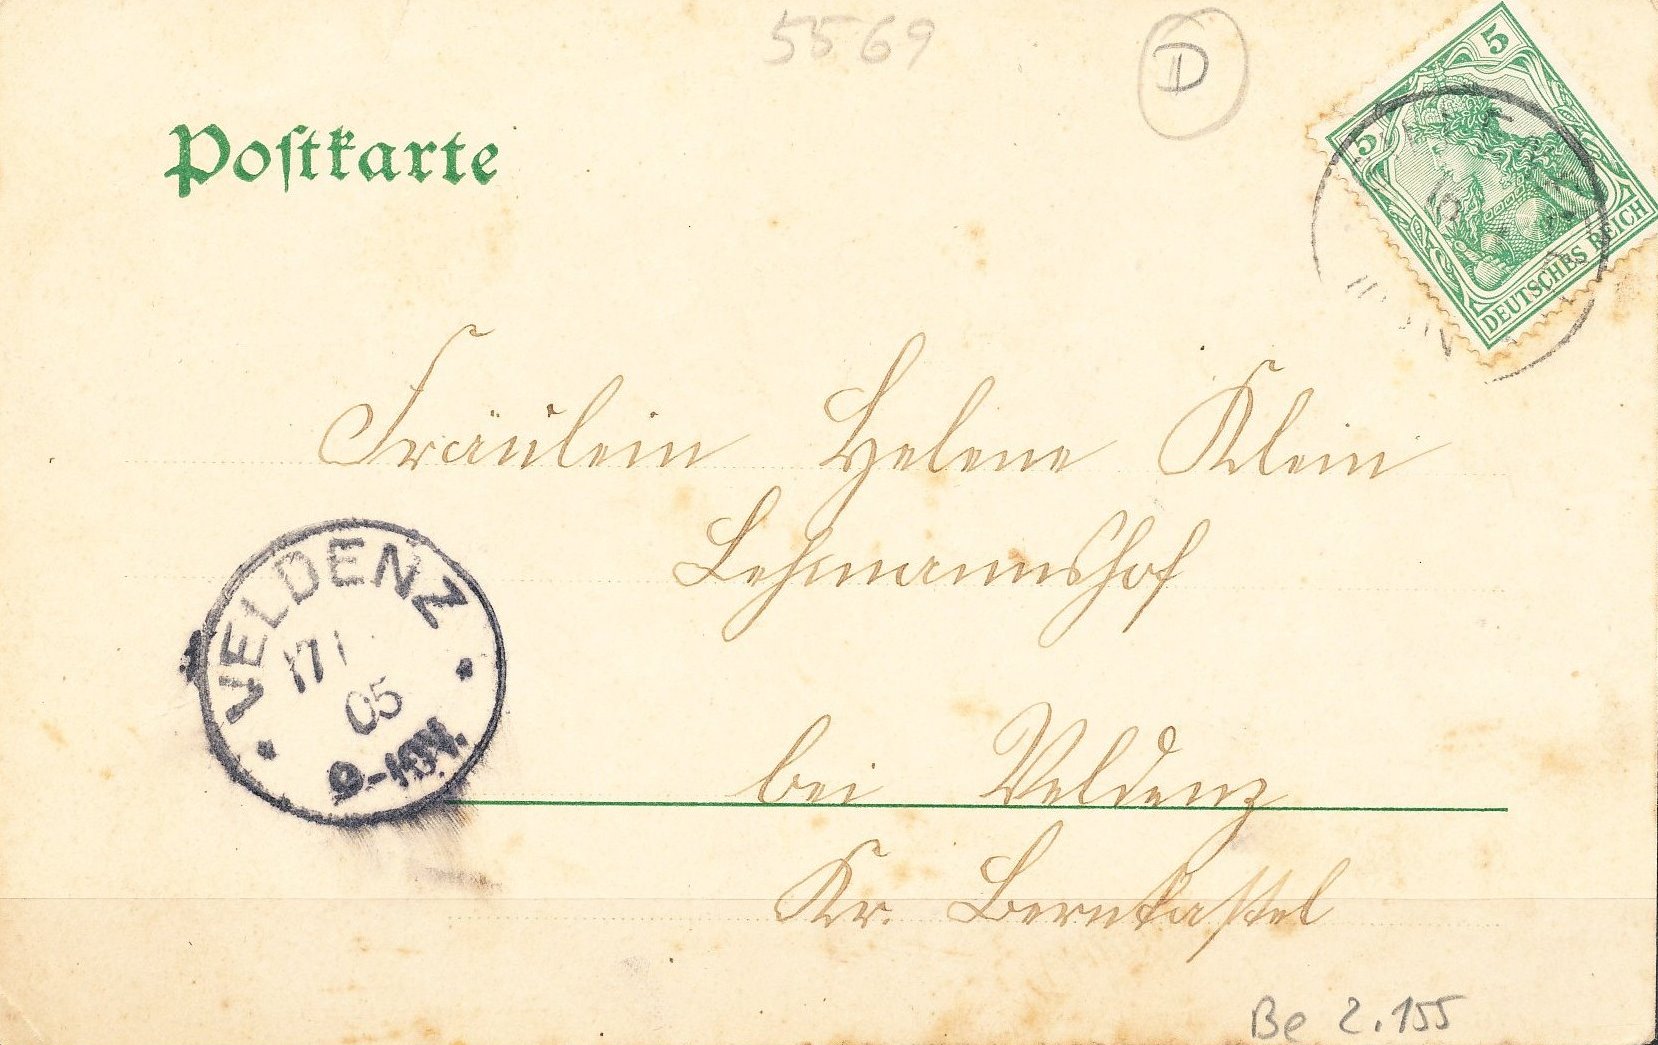 5569
D
5
5
DEUTSCHES REICH
Postkarte
Fräulein Helene Klein
Lehmannshof
VELDENZ
17 1
05
9-10V.
bei Veldenz
Kr. Bernkastel
Be 2.155